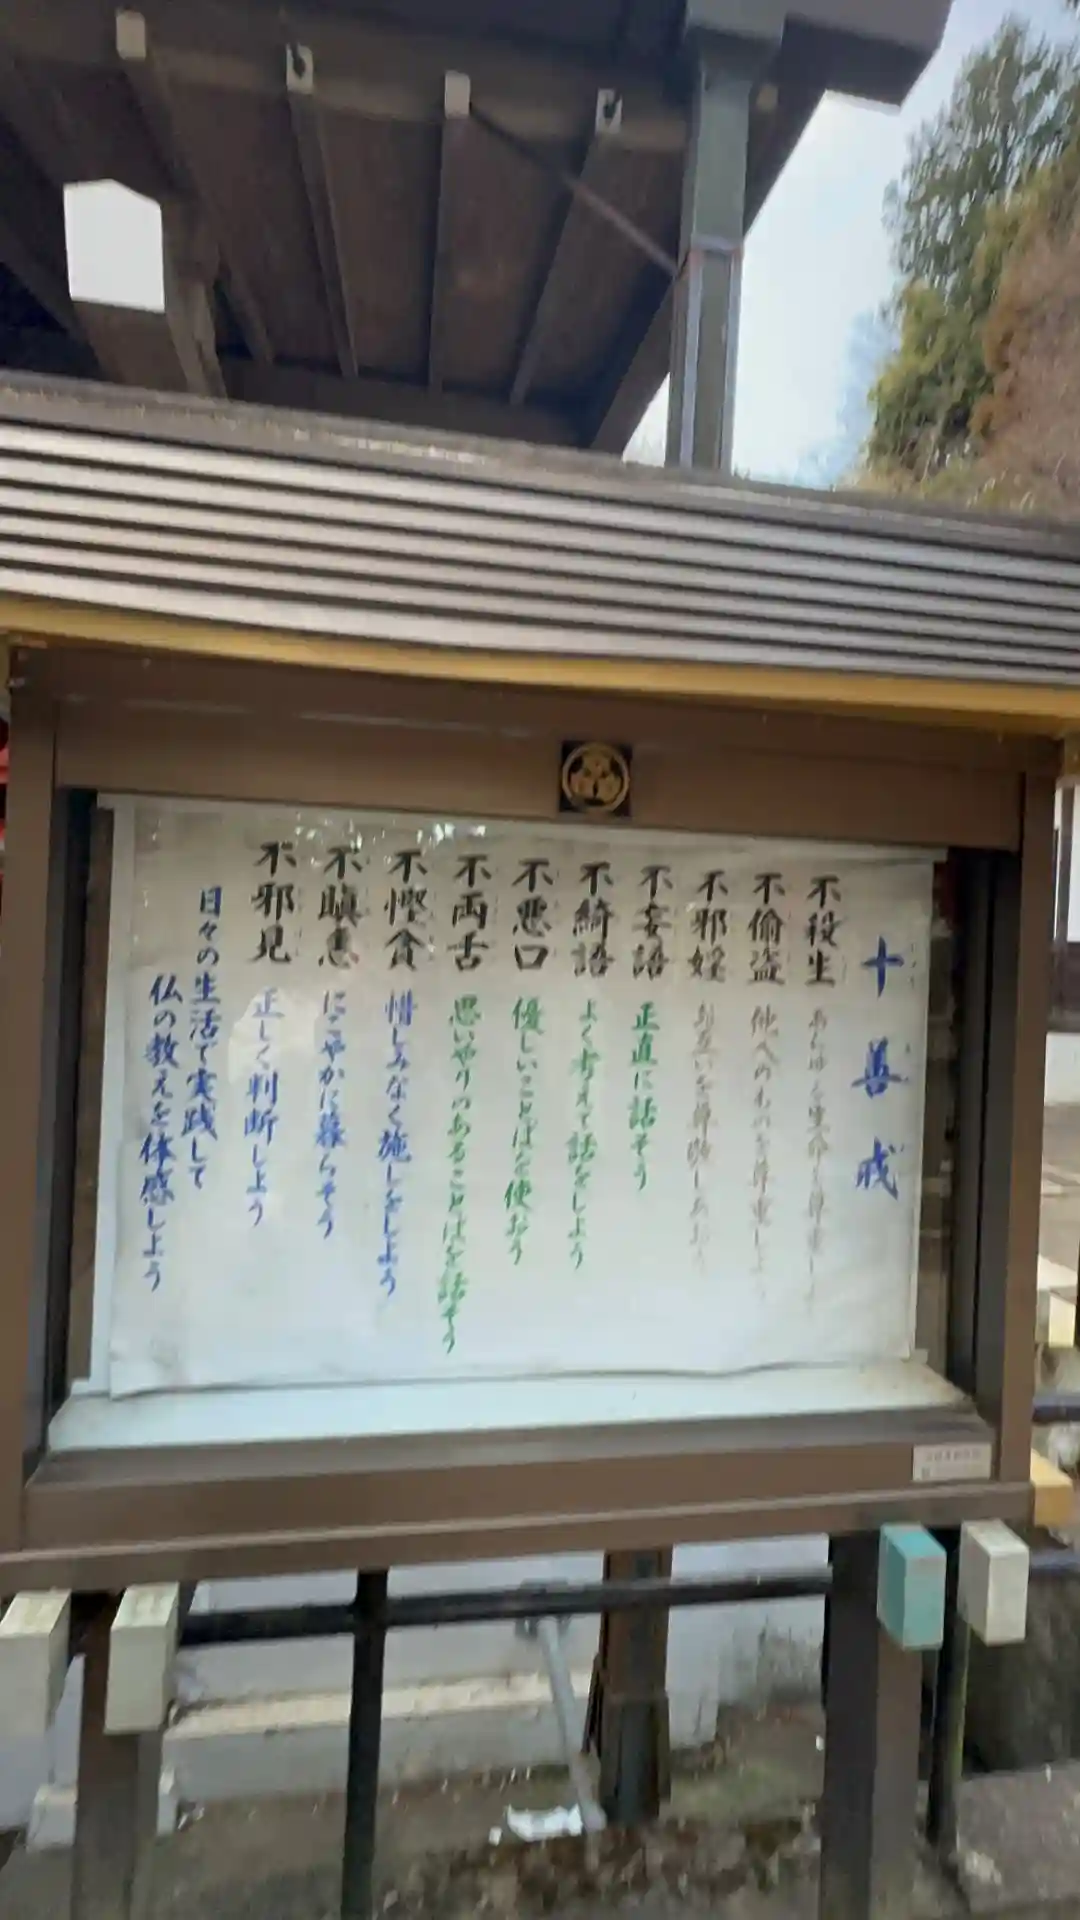 十善戒
不殺生 あらゆる生命を尊重し
不偸盗 他人のものを尊重しよう
不邪婬 お互いを尊敬しあおう
不妄語 正直に話そう
不綺語 よく考えて話をしよう
不悪口 優しいことばを使おう
不両舌 思いやりのあることばを話そう
不慳貪 惜しみなく施しをしよう
不瞋恚 にこやかに暮らそう
不邪見 正しく判断しよう
日々の生活で実践して
仏の教えを体感しよう